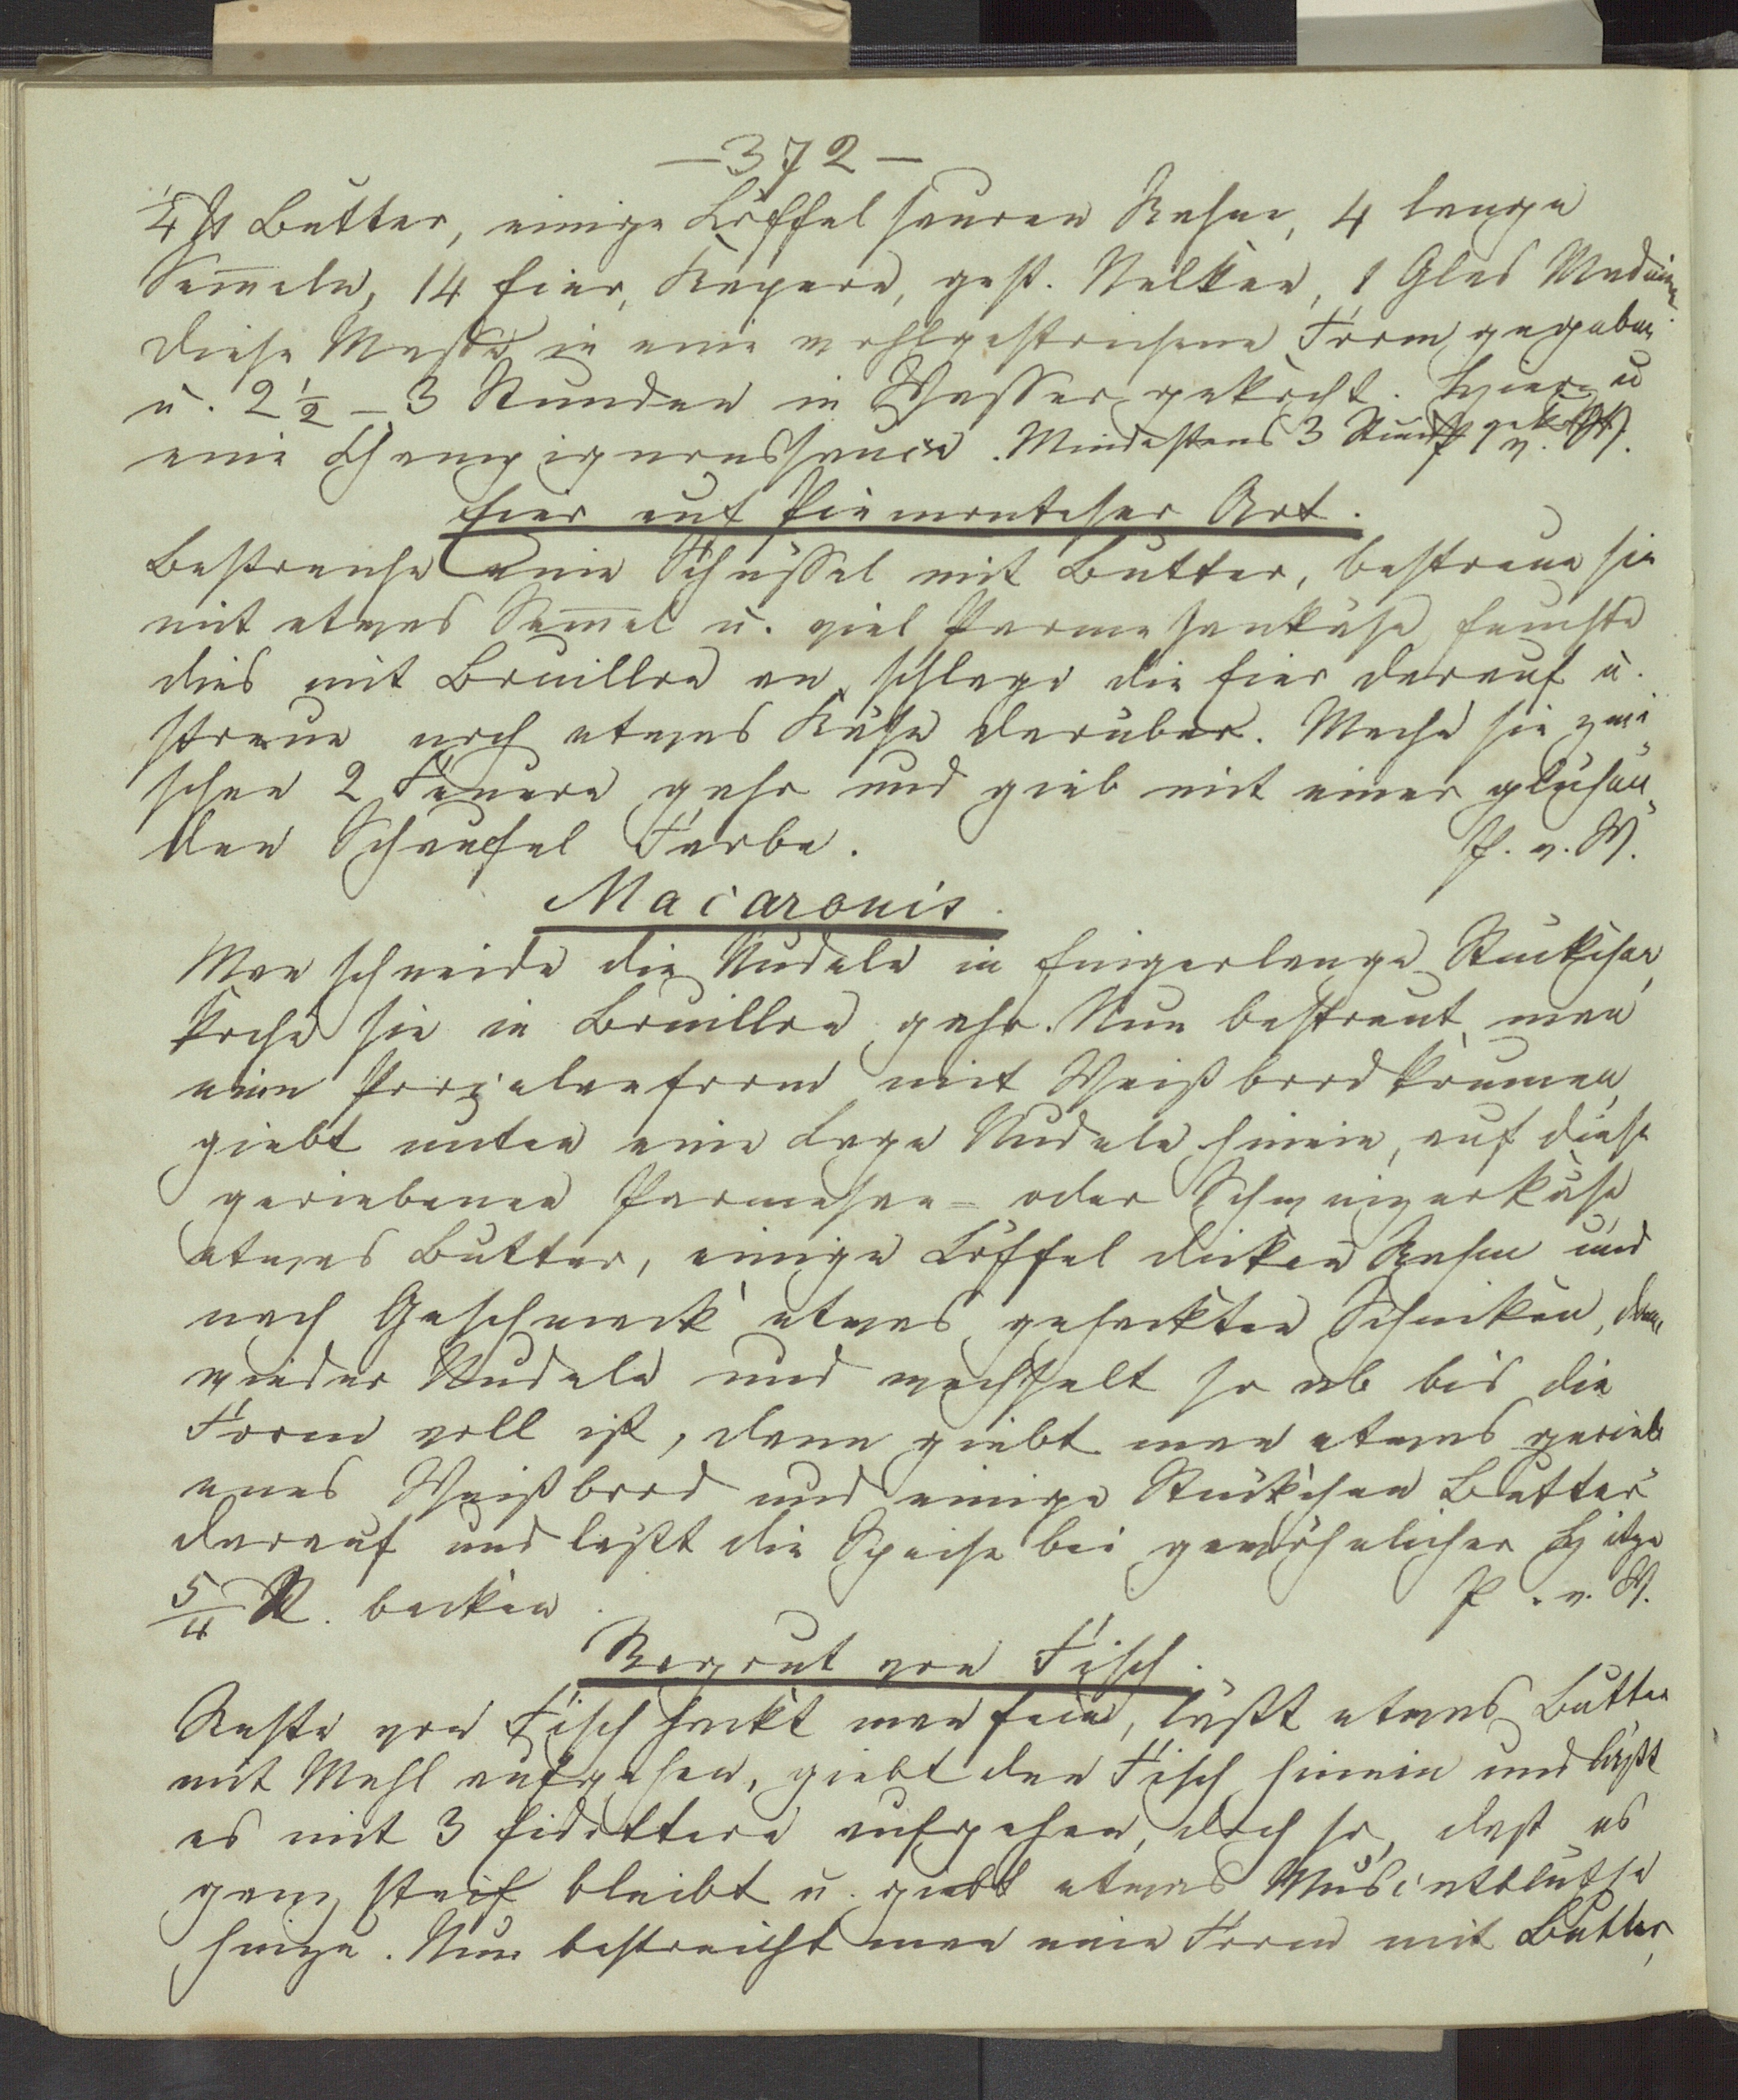 — 372 —
1/4 ℔ Butter, einige Löffel sauren Rahm, 4 lange
Sem̅eln, 14 Eier, Kapern, gest. Nelken, 1 Glas Madeira.
Diese Masse in eine wohlgestrichene Form gegeben
u. 2 1/2 – 3 Stunden in Wasser gekocht. Hierzu
eine Champignonssauce. Mindestens 3 Stund P. v. W.
Eier auf Piemonteser Art.
Bestreiche eine Schüssel mit Butter, bestreue sie
mit etwas Sem̅el u. viel Parmesankäse, feuchte
dies mit Bouillon an, schlage die Eier darauf u.
streue noch etwas Käse darüber. Mache sie zwi
schen 2 Feuern gahr und gieb mit einer glühen„
den Schaufel Farbe. P. v. W.
Macaronis.
Man schneide die Nudeln in fingerlange Stückchen,
koche sie in Bouillon gahr. Nun bestreut man
eine Porzelanform mit Weißbrodkrumen,
giebt unten eine Lage Nudeln hinein, auf diese
geriebenen Parmesan- oder Schweizerkäse,
etwas Butter, einige Löffel dicken Rahm und
nach Geschmack etwas gehackten Schinken, dann
wieder Nudeln und wechselt so ab bis die
Form voll ist, dann giebt man etwas gerieb
enes Weißbrod und einige Stückchen Butter
darauf und läßt die Speise bei gewöhnlicher Hitze
5/4 St. backen. P. v. W.
Ragout von Fisch.
Reste von Fisch hackt man fein, läßt etwas Butter
mit Mehl aufgehen, giebt den Fisch hinein und läßt
es mit 3 Eidottern aufgehen, doch so, daß es
ganz steif bleibt u. giebt etwas Muscatblüthe
hinzu. Nun bestreicht man eine Form mit Butter,